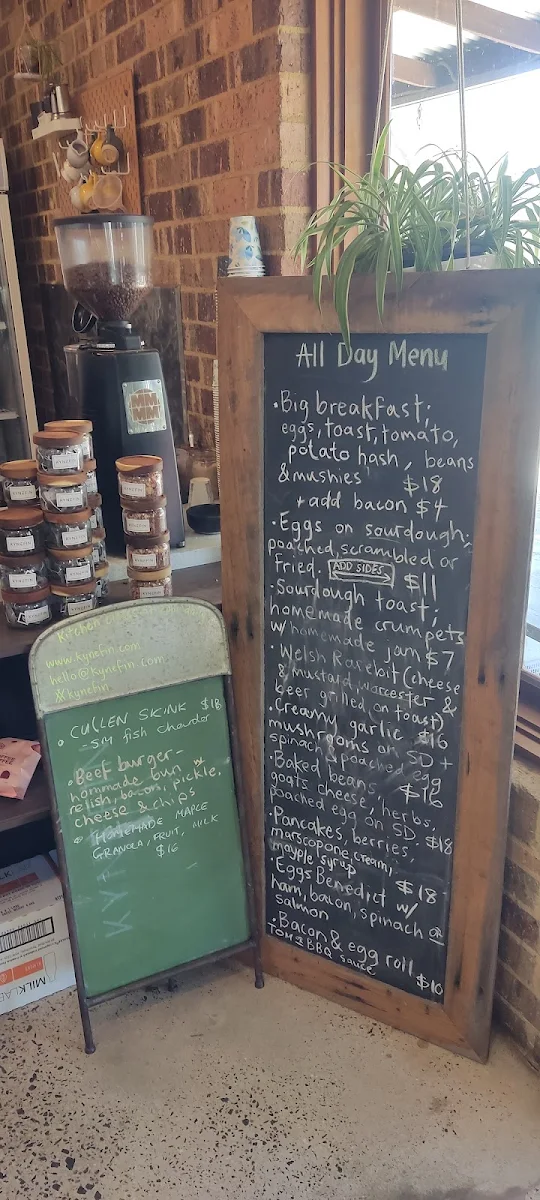 All Day Menu
•Big breakfast;
eggs, toast, tomato,
potato hash, beans
& mushies $18
+ add bacon $4
•Eggs on sourdough;
poached, scrambled or
Fried. ADD SIDES $11
•Sourdough toast;
homemade crumpets
w/ homemade jam $7
•Welsh Rarebit (cheese
& mustard, worcester &
beer grilled on toast)
•Creamy garlic $16
mushrooms on SD +
spinach & poached egg
•Baked beans, $16
goats cheese, herbs,
poached egg on SD. $18
•Pancakes, berries,
marscopone, cream,
mayple syrup
•Eggs Benedict $18
w/
ham, bacon, spinach or
salmon
•Bacon & egg roll
TOM or BBQ sauce $10
Kitchen
www.kynefin.com
hello@kynefin.com
kynefin
• CULLEN SKINK $18
- SM fish chowder
•Beef burger-
hommade bun w
relish, bacon, pickle,
cheese & chips
• HOMEMADE MAPLE
GRANOLA, FRUIT, MILK
$16
MINI
MINI
KYNEFIN
MILKLAB